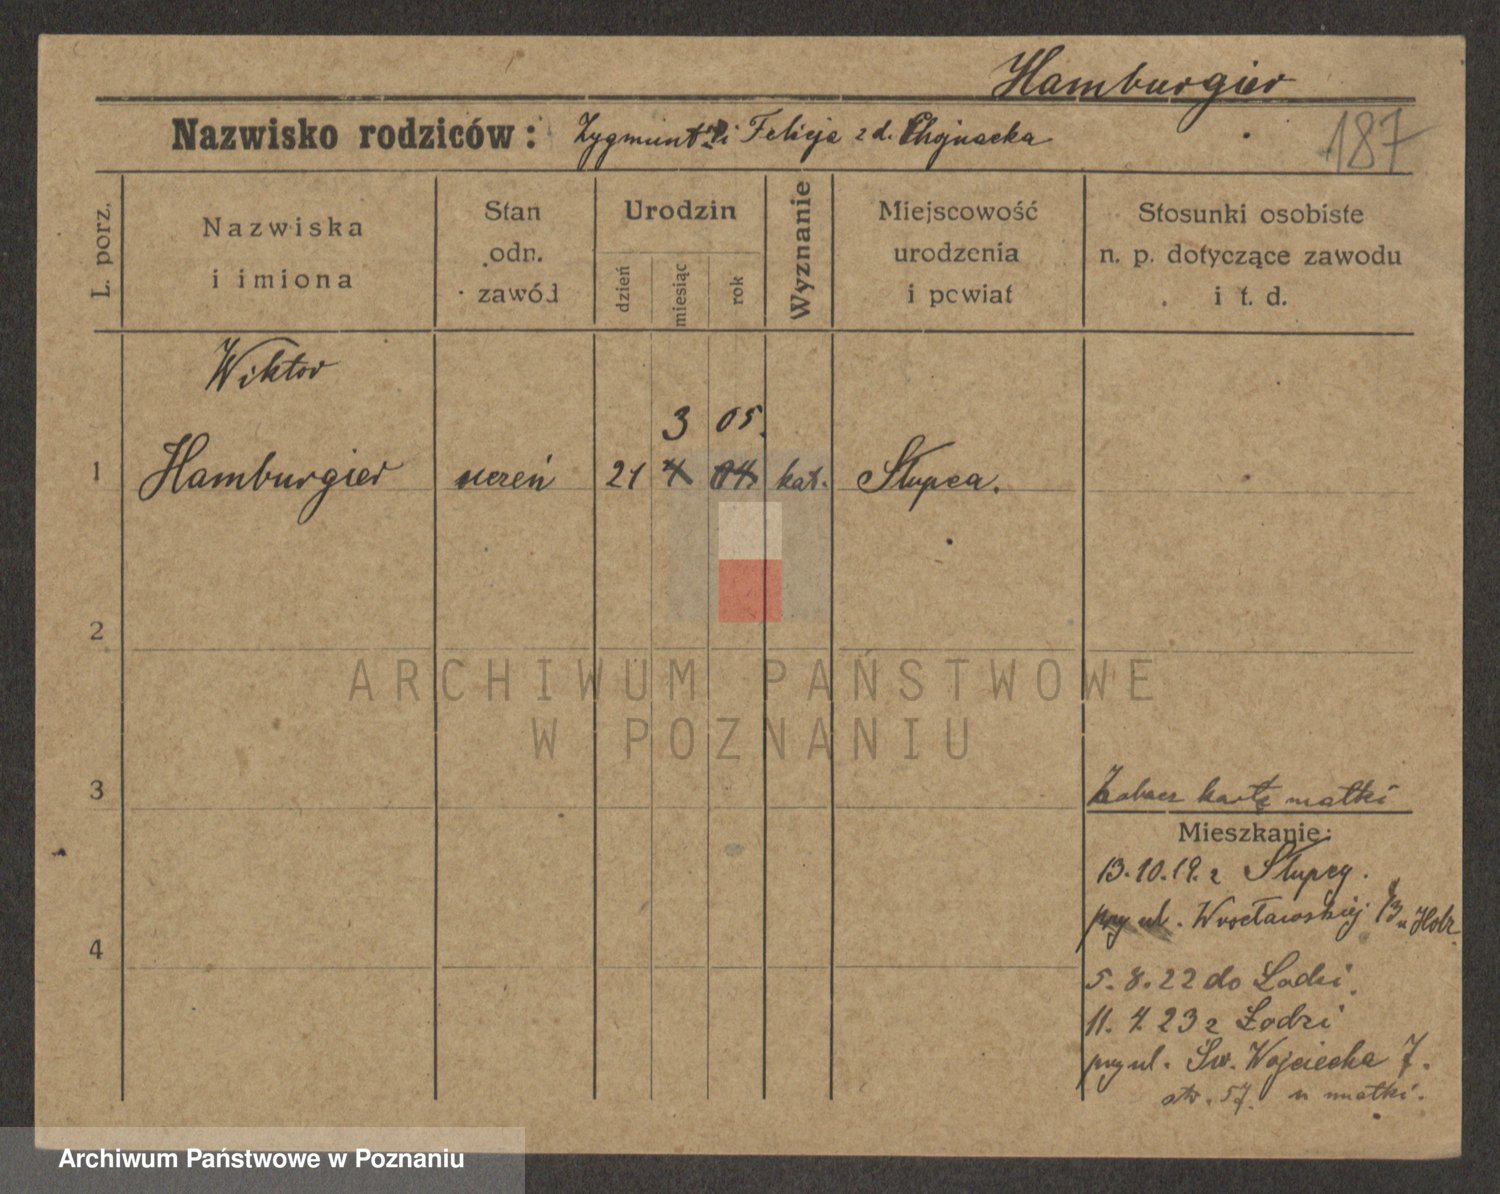 Hamburgier
Nazwisko rodziców: Zygmunt i Felicja z d. Chojnacka
187
L. porz.
Nazwiska
i imiona
Stan
odn.
zawód
Urodzin
dzień
miesiąc
rok
Wyznanie
Miejscowość
urodzenia
i powiat
Stosunki osobiste
n. p. dotyczące zawodu
i t. d.
Wiktor
3 05.
1 Hamburgier uczeń 21 4 04 kat. Słupca.
2
ARCHIWUM PAŃSTWOWE
W POZNANIU
3
Zobacz kartę matki
Mieszkanie:
13.10.19. z Słupcy.
przy ul. Wrocławskiej 13 u Holz
4
5.8.22 do Łodzi.
11.4.23 z Łodzi
przy ul. Św. Wojciecha 7.
str. 57. u matki.
Archiwum Państwowe w Poznaniu